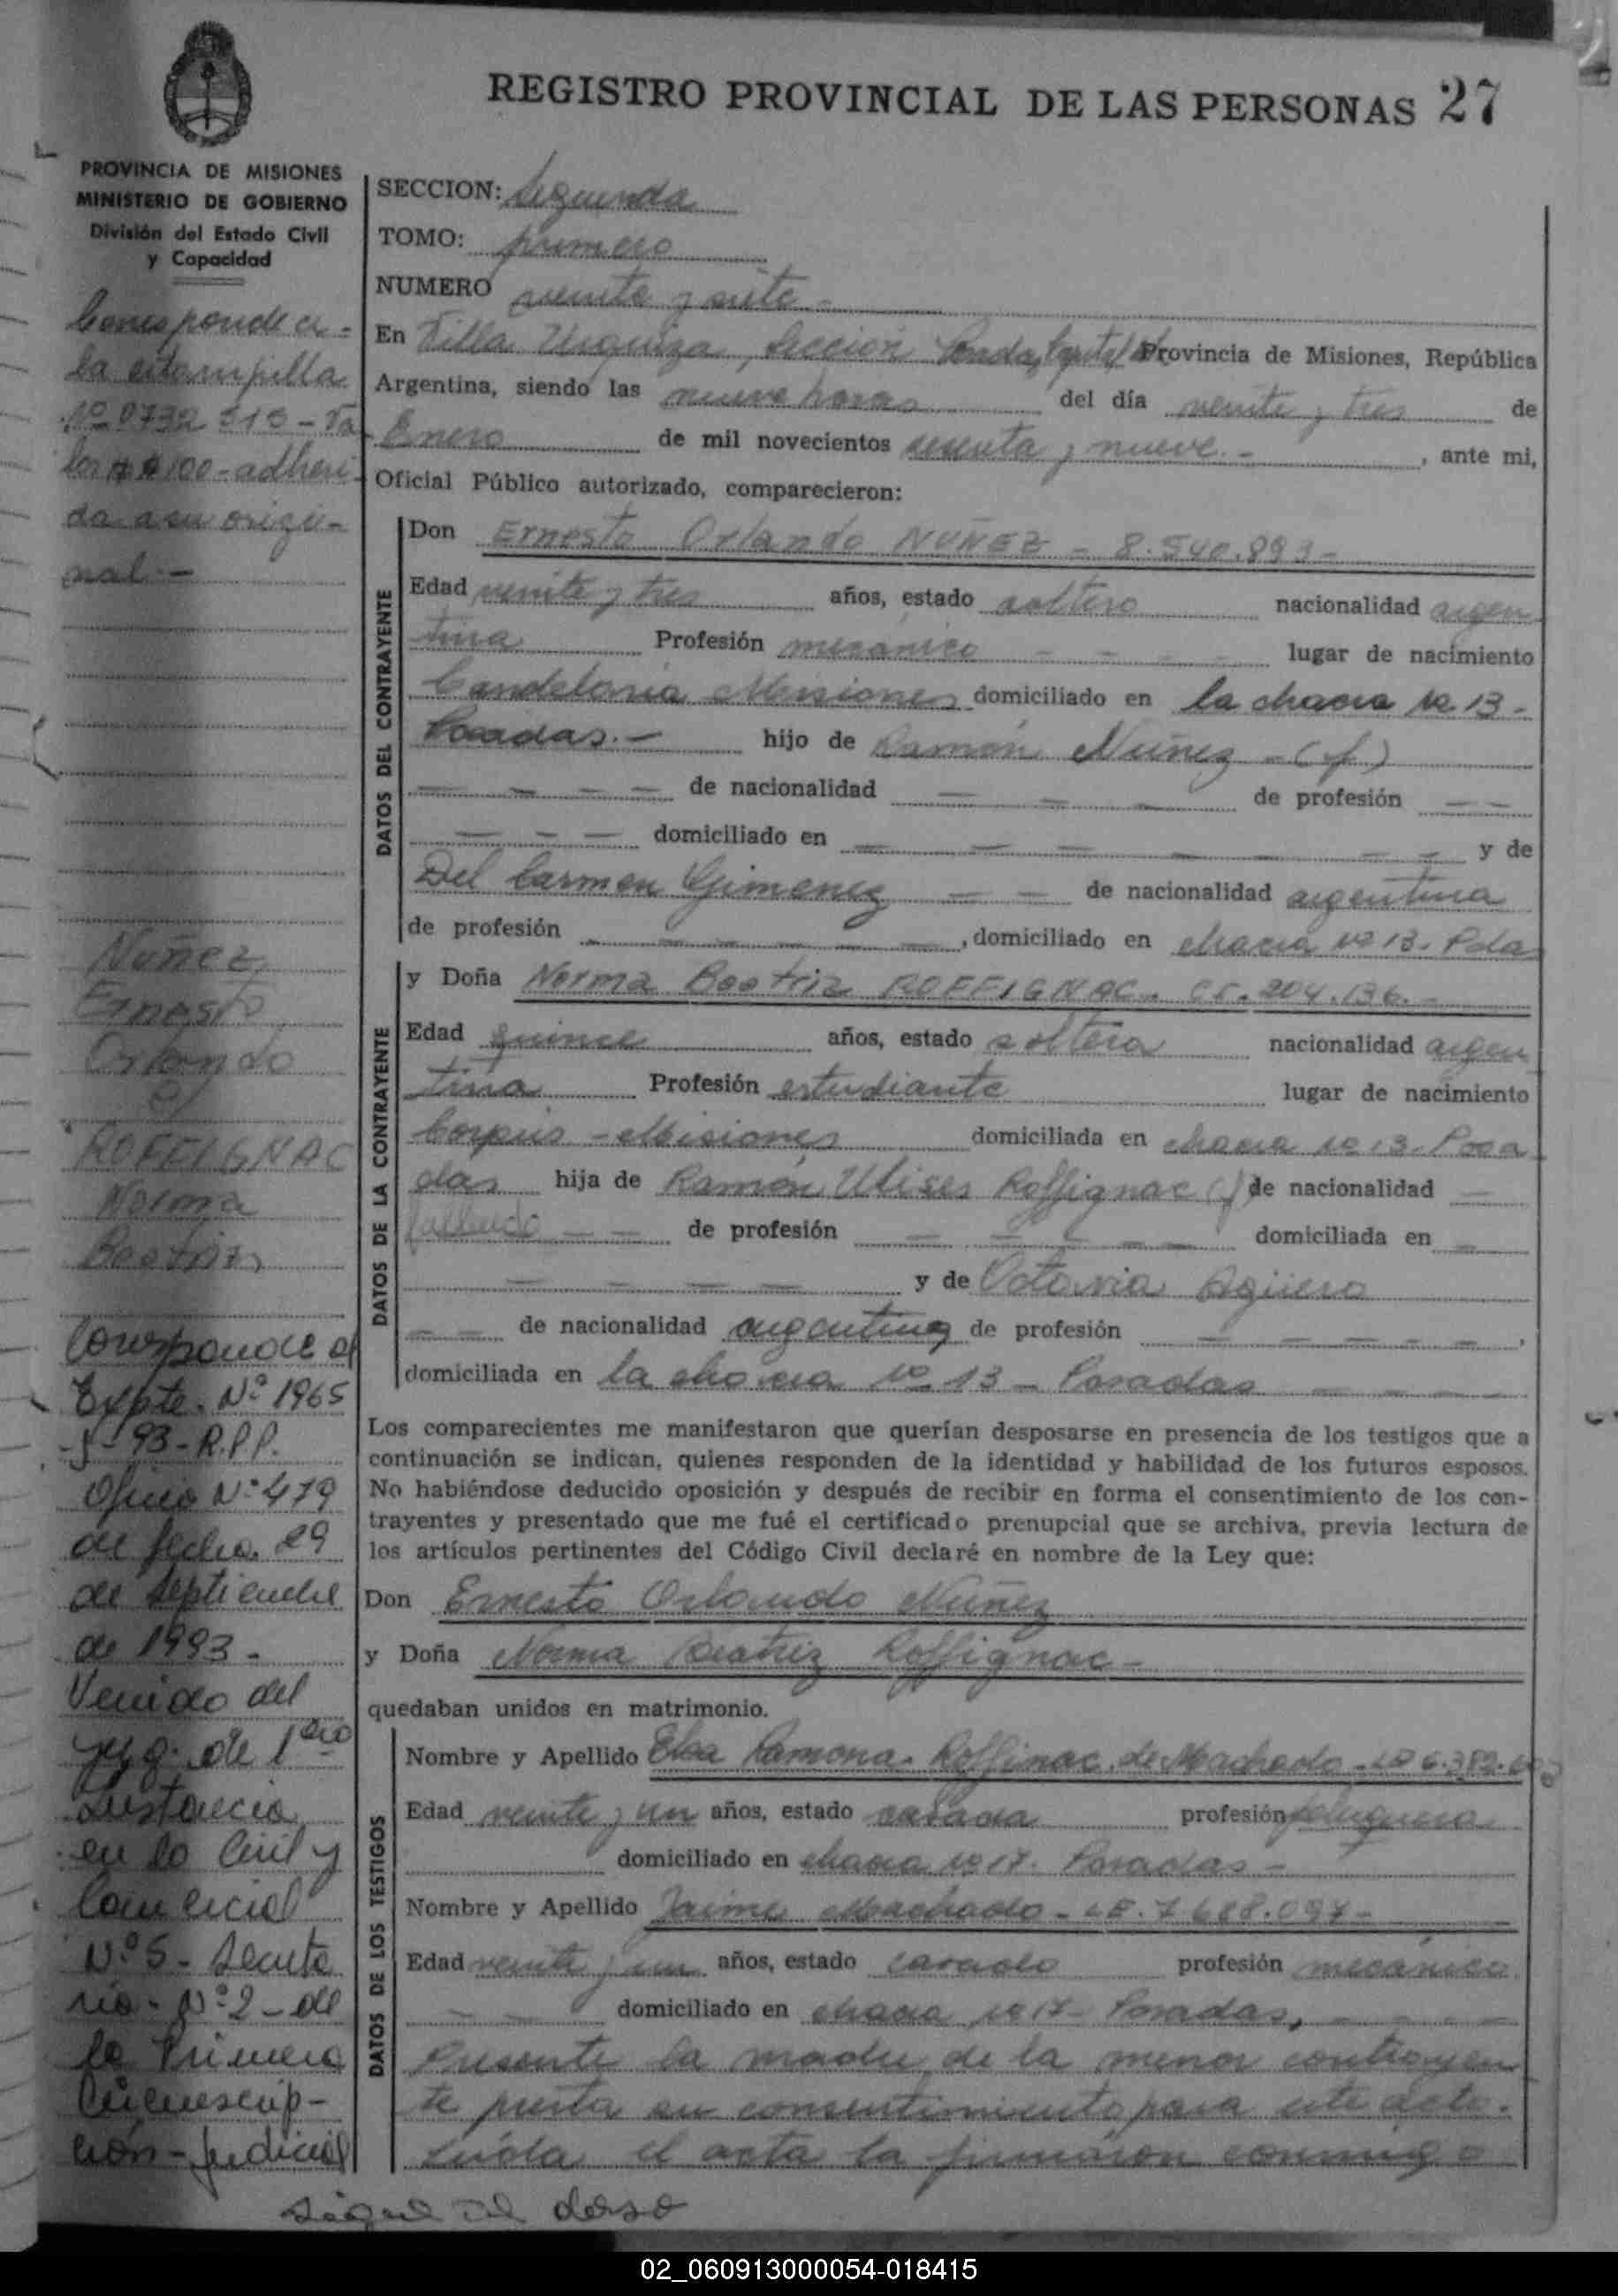 REGISTRO PROVINCIAL DE LAS PERSONAS 27
PROVINCIA DE MISIONES
MINISTERIO DE GOBIERNO
División del Estado Civil
y Capacidad
Corresponde a
la estampilla
Nº 0732 515 - Va
lor $ 100 - adheri
da a su origi-
nal. -
Nuñez
Ernesto
Orlando
c/
ROFFIGNAC
Norma
Beatriz
Corresponde al
Expte. Nº 1965
93 - R.P.P.
Oficio Nº 479
de fecha 29
de septiembre
de 1993 -
Venido del
Juzg. de 1era
Instancia
en lo Civil y
Comercial
Nº 5 - Secreta
ria - Nº 2 - de
la Primera
Circunscrip-
ción - Judicial
SECCION: Segunda
TOMO: primero
NUMERO veinte y siete -
En Villa Urquiza, Sección Posadas, Capital de Provincia de Misiones, República
Argentina, siendo las nueve horas del día veinte y tres de
Enero de mil novecientos sesenta y nueve. - , ante mi,
Oficial Público autorizado, comparecieron:
DATOS DEL CONTRAYENTE
Don Ernesto Orlando NUÑEZ - 8.540.893 -
Edad veinte y tres años, estado soltero nacionalidad argen
tina Profesión mecánico - - - - lugar de nacimiento
Candelaria Misiones domiciliado en la chacra Nº 13 -
Posadas. - hijo de Ramón Nuñez - (f)
- - - - de nacionalidad - - - de profesión - -
- - - domiciliado en - - - - - - y de
Del Carmen Gimenez - - de nacionalidad argentina
de profesión - - - - - , domiciliado en chacra Nº 13. Pda
DATOS DE LA CONTRAYENTE
y Doña Norma Beatriz ROFFIGNAC. CI. 204.136. -
Edad quince años, estado soltera nacionalidad argen
tina Profesión estudiante lugar de nacimiento
Corpus - Misiones domiciliada en chacra Nº 13. Posa
das hija de Ramón Ulises Roffignac (f) de nacionalidad -
fallecido - - de profesión - - - - - domiciliada en -
- - - - y de Octavia Agüero
- - de nacionalidad argentina de profesión - - - - - ,
domiciliada en la chacra Nº 13 - Posadas - - - -
Los comparecientes me manifestaron que querían desposarse en presencia de los testigos que a
continuación se indican, quienes responden de la identidad y habilidad de los futuros esposos.
No habiéndose deducido oposición y después de recibir en forma el consentimiento de los con-
trayentes y presentado que me fué el certificado prenupcial que se archiva, previa lectura de
los artículos pertinentes del Código Civil declaré en nombre de la Ley que:
Don Ernesto Orlando Nuñez
y Doña Norma Beatriz Roffignac -
quedaban unidos en matrimonio.
DATOS DE LOS TESTIGOS
Nombre y Apellido Elsa Ramona Roffinac de Machado - 6.382.
Edad veinte y un años, estado casada profesión peluquera
domiciliado en chacra Nº 17. Posadas -
Nombre y Apellido Jaime Machado - LE. 7.688.097 -
Edad veinte y un años, estado casado profesión mecánico
- - domiciliado en chacra Nº 17 - Posadas, - - - -
Presente la madre de la menor contrayen
te presta su consentimiento para este acto.
Leída el acta la firmaron conmigo
Sigue al dorso
02_060913000054-018415